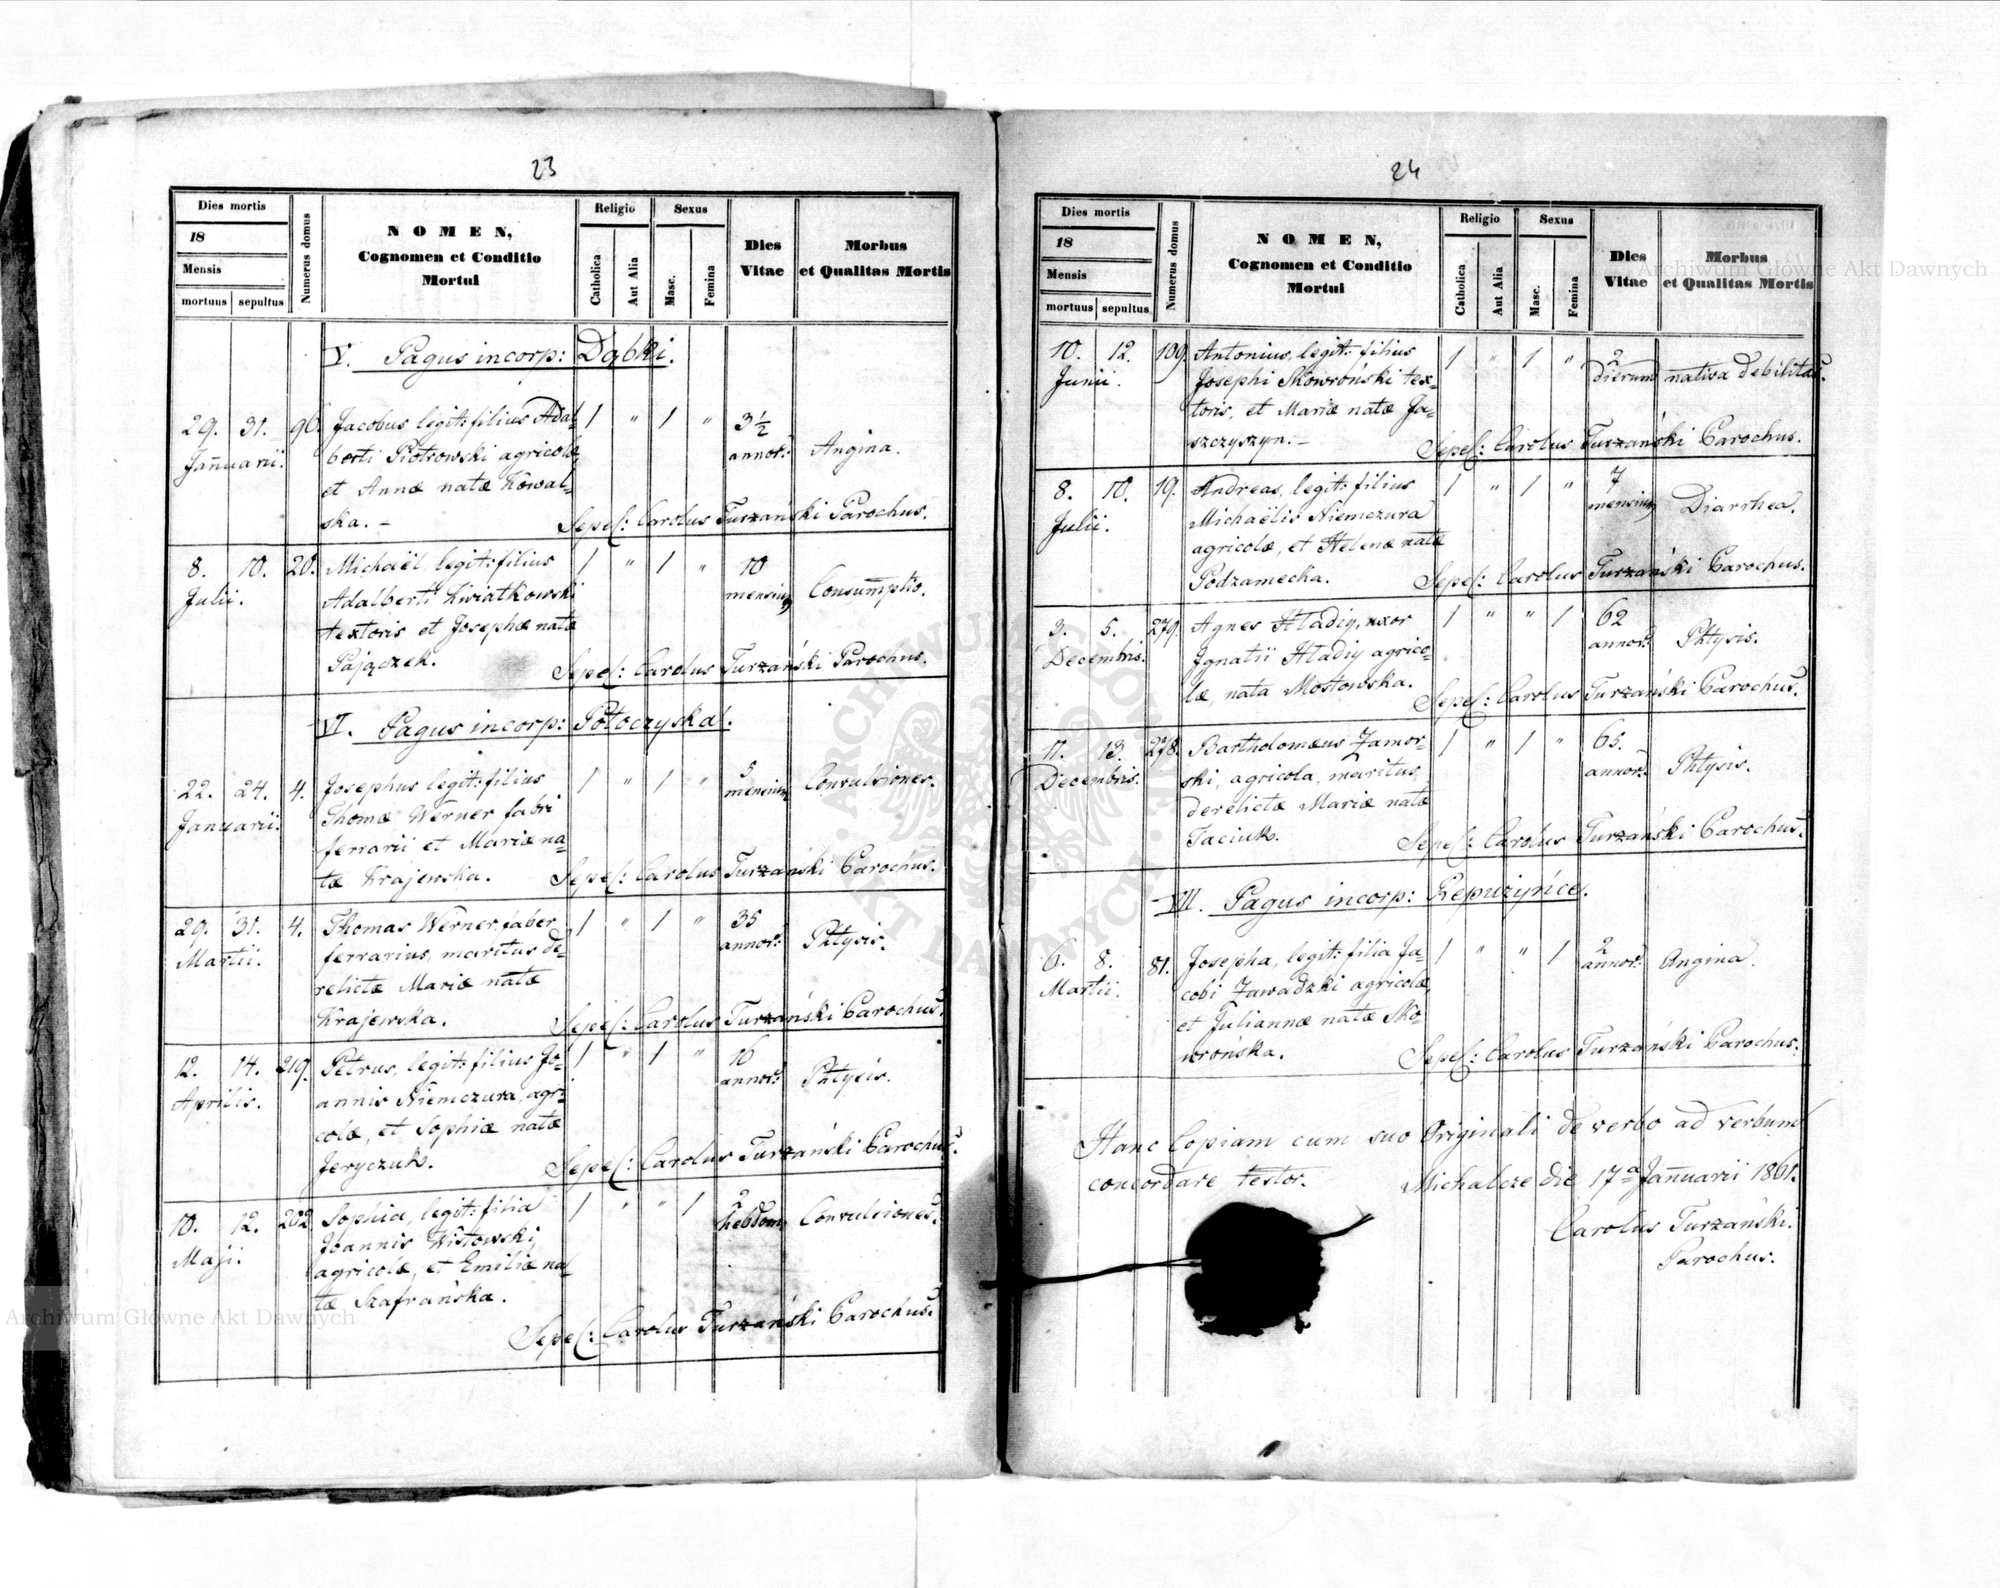 23
Dies mortis
18
Mensis
mortuus sepultus
Numerus domus
NOMEN,
Cognomen et Conditio
Mortui
Religio
Catholica
Aut Alia
Sexus
Masc.
Femina
Dies
Vitae
Morbus
et Qualitas Mortis
V. Pagus incorp: Dąbki.
29. 31. 96. Jacobus legit: filius Adal= 1 " 1 " 3½
Januarii. berti Piotrowski agricolæ, annor: Angina.
et Annæ natæ Kowal=
ska. – Sepel: Carolus Turzański Parochus.
8. 10. 20. Michaël, legit: filius 1 " 1 " 10
Julii. Adalberti Kwiatkowski mensium Consumptio.
textoris et Josephæ natæ
Pajączek. Sepel: Carolus Turzański Parochus.
VI. Pagus incorp: Potoczyska.
22. 24. 4. Josephus legit: filius 1 " 1 " 5 mensium Convulsiones.
Januarii. Thomæ Werner fabri
ferrarii et Mariæ na=
tæ Krajewska. Sepel: Carolus Turzański Parochus.
29. 31. 4. Thomas Werner, faber 1 " 1 " 35
Martii. ferrarius, maritus de= annor: Phtysis.
relictæ Mariæ natæ
Krajewska. Sepel: Carolus Turzański Parochus.
12. 14. 219. Petrus, legit: filius Jo= 1 " 1 " 16
Aprilis. annis Niemczura, agri= annor: Phtysis.
colæ, et Sophiæ natæ
Jeryczuk. Sepel: Carolus Turzański Parochus.
10. 12. 202. Sophia, legit: filia 1 " " 1 2
Maji. Joannis Wistowski, hebdom. Convulsiones.
agricolæ, et Emiliæ na=
tæ Szafrańska.
Sepel: Carolus Turzański Parochus.
24
Dies mortis
18
Mensis
mortuus sepultus
Numerus domus
NOMEN,
Cognomen et Conditio
Mortui
Religio
Catholica
Aut Alia
Sexus
Masc.
Femina
Dies
Vitae
Morbus
et Qualitas Mortis
10. 12. 109. Antonius, legit: filius 1 " 1 " 2
Junii. Josephi Skowroński tex= dierum nativa debilitas.
toris, et Mariæ natæ Ja=
szczyszyn. – Sepel: Carolus Turzański Parochus.
8. 10. 19. Andreas, legit: filius 1 " 1 " 7
Julii. Michaëlis Niemczura mensium Diarrhea.
agricolæ, et Helenæ natæ
Podzamecka. Sepel: Carolus Turzański Parochus.
3. 5. 279. Agnes Hladiy, uxor 1 " " 1 62
Decembris. Ignatii Hladiy agrico= annor: Phtysis.
læ, nata Mostowska. Sepel: Carolus Turzański Parochus.
11. 13. 278. Bartholomæus Zamor= 1 " 1 " 65.
Decembris. ski, agricola, maritus annor: Phtysis.
derelictæ Mariæ natæ
Taciuk. Sepel: Carolus Turzański Parochus.
VII. Pagus incorp: Repużyńce.
6. 8. 81. Josepha, legit: filia Ja= 1 " " 1 2 annor: Angina.
Martii. cobi Zawadzki agricolæ,
et Juliannæ natæ Sko=
wrońska. Sepel: Carolus Turzański Parochus.
Hanc Copiam cum suo Originali de verbo ad verbum
concordare testor. Michalcze die 17ª Januarii 1861.
Carolus Turzański.
Parochus.
Archiwum Główne Akt Dawnych
Archiwum Główne Akt Dawnych
ARCHIWUM GŁÓWNE AKT DAWNYCH